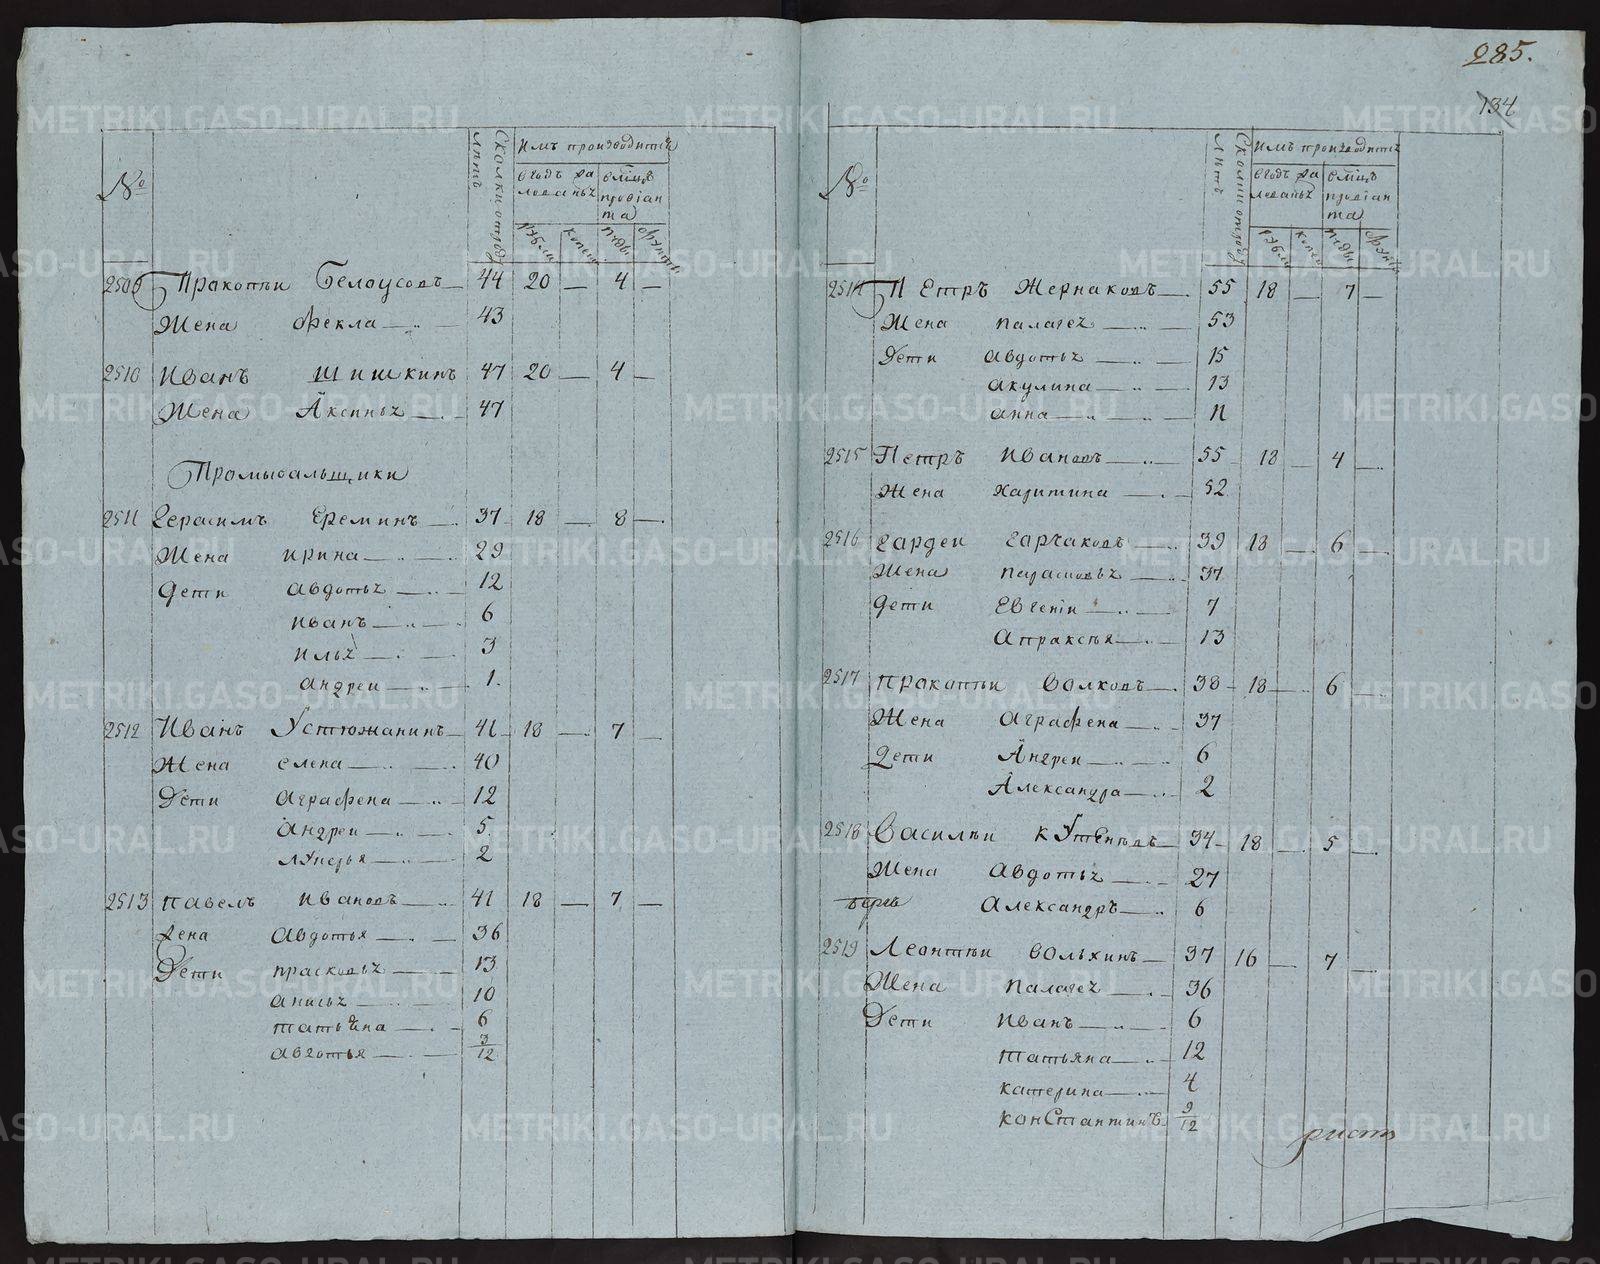 285.
134
№
Сколки отроду лѣтъ
Имъ производитца
вгодъ жалованьѣ
вмѣцъ провіанта
рубли
копеи
пуды
фунты
2509 Пракопѣи Белоусовъ 44 20 — 4 —
Жена Фекла 43
2510 Иванъ Шишкинъ 47 20 — 4 —
Жена Аксиньѣ 47
Промывальщики
2511 Герасимъ Ереминъ 37 18 — 8 —
Жена ирина 29
Дети авдотьѣ 12
иванъ 6
ильѣ 3
андреи 1.
2512 Иванъ Устюжанинъ 41 18 — 7 —
Жена елена 40
Дети аграфена 12
андреи 5
лукерья 2
2513 павелъ ивановъ 41 18 — 7 —
Жена авдотья 36
Дети прасковьѣ 13
анисьѣ 10
татьяна 6
авдотья 3/12
№
Сколки отроду лѣтъ
Имъ произвадитца
вгодъ жалованьѣ
вмѣцъ провіанта
рубли
копеи
пуды
фунты
2514 Петръ Жернаковъ 55 18 — 7 —
Жена палагеѣ 53
Дети авдотьѣ 15
акулина 13
анна 11
2515 Петръ Ивановъ 55 18 — 4 —
Жена харитина 52
2516 гардеи гарчаковъ 39 18 — 6 —
Жена парасковьѣ 37
Дети Евгеніи 7
Апраксья 13
2517 пракопѣи волковъ 38 18 — 6 —
Жена аграфена 37
Дети Андреи 6
Александра 2
2518 Василѣи кутенповъ 34 18 — 5 —
Жена авдотьѣ 27
Александръ 6
2519 Леонтѣи вольхинъ 37 16 — 7 —
Жена палагеѣ 36
Дети иванъ 6
татьяна 12
катерина 4
константинъ 9/12